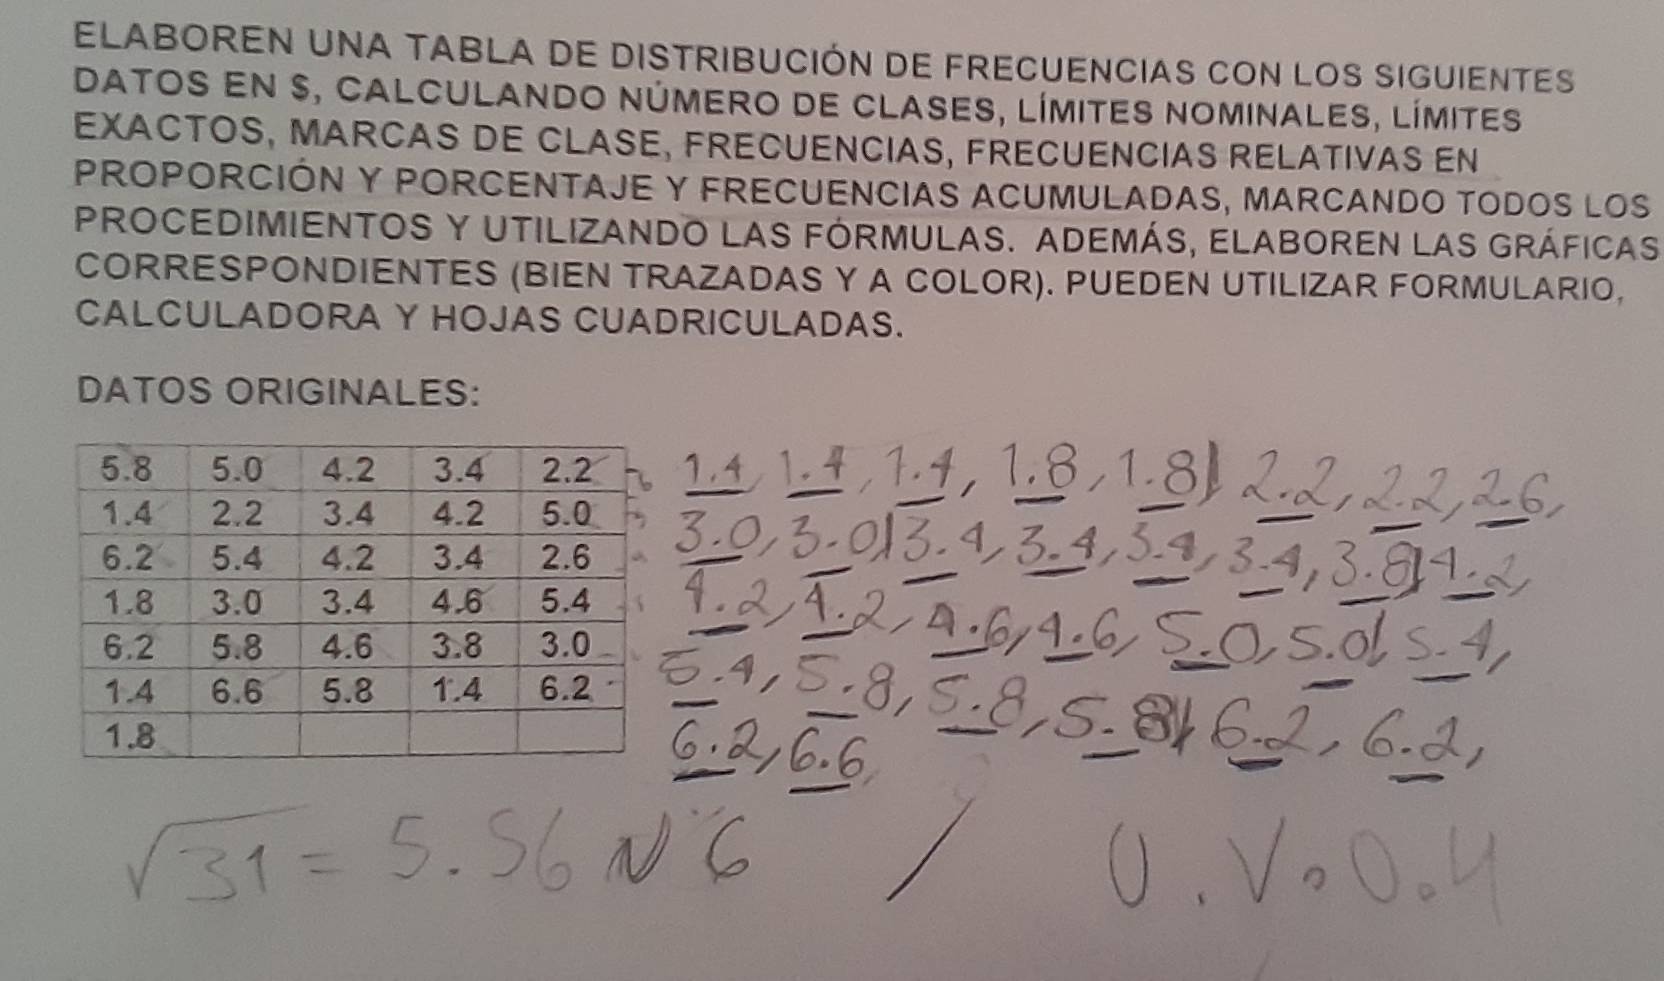 ELABOREN UNA TABLA DE DISTRIBUCIÓN DE FRECUENCIAS CON LOS SIGUIENTES
DATOS EN $, CALCULANDO NÚMERO DE CLASES, LÍMITES NOMINALES, LÍMITES
EXACTOS, MARCAS DE CLASE, FRECUENCIAS, FRECUENCIAS RELATIVAS EN
PROPORCIÓN Y PORCENTAJE Y FRECUENCIAS ACUMULADAS, MARCANDO TODOS LOS
PROCEDIMIENTOS Y UTILIZANDO LAS FÓRMULAS. ADEMÁS, ELABOREN LAS GRÁFICAS
CORRESPONDIENTES (BIEN TRAZADAS Y A COLOR). PUEDEN UTILIZAR FORMULARIO,
CALCULADORA Y HOJAS CUADRICULADAS.
DATOS ORIGINALES:
5.8 5.0 4.2 3.4 2.2
1.4 2.2 3.4 4.2 5.0
6.2 5.4 4.2 3.4 2.6
1.8 3.0 3.4 4.6 5.4
6.2 5.8 4.6 3.8 3.0
1.4 6.6 5.8 1.4 6.2
1.8
1.4, 1.4, 1.4, 1.8, 1.8) 2.2, 2.2, 2.6,
3.0, 3.0) 3.4, 3.4, 3.4, 3.4, 3.8) 4.2,
4.2, 4.2, 4.6, 4.6, 5.0, 5.0) 5.4,
5.4, 5.8, 5.8, 5.8) 6.2, 6.2,
6.2, 6.6,
√31 = 5.56 N 6 / U.V. 0.4